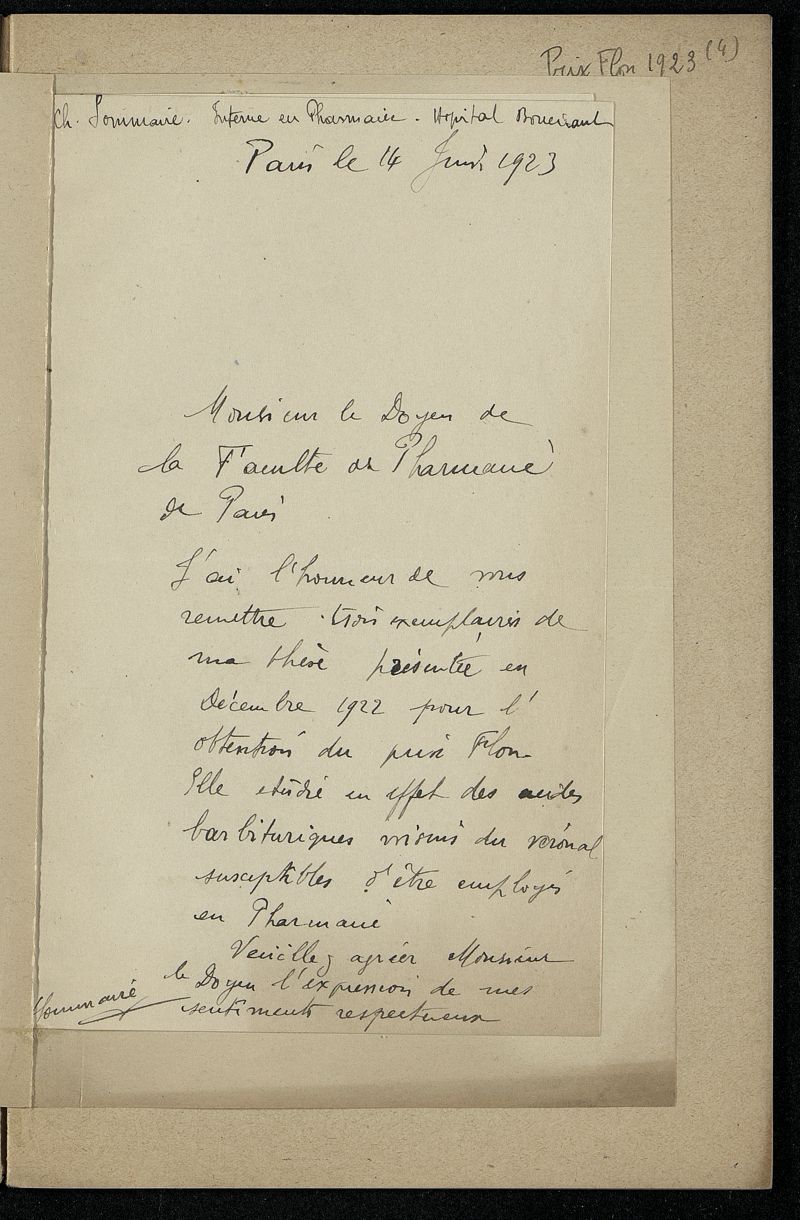 Prix Flon 1923 (4)
Ch. Sommaire. Interne en Pharmacie - Hopital Boucicaut
Paris le 14 Juin 1923
Monsieur le Doyen de
la Faculté de Pharmacie
de Paris
J'ai l'honneur de vous
remettre trois exemplaires de
ma thèse présentée en
Décembre 1922 pour l'
obtention du prix Flon
Elle etudie en effet des acides
barbituriques voisins du veronal
susceptibles d'être employés
en Pharmacie
Veuillez agréer Monsieur
le Doyen l'expression de mes
sentiments respectueux
Sommaire